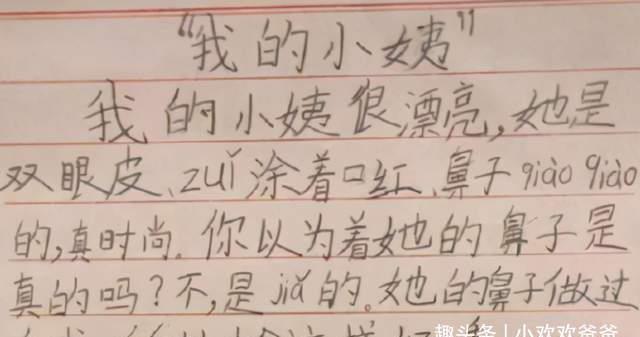 “我的小姨”
我的小姨很漂亮,她是
双眼皮、zuǐ涂着口红、鼻子qiào qiào
的,真时尚。你以为着她的鼻子是
真的吗？不,是jiǎ的。她的鼻子做过
趣头条 | 小欢欢爸爸